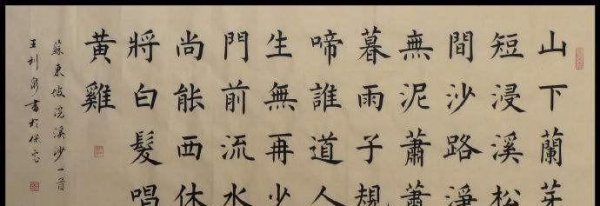 山下蘭芽
短浸溪松
間沙路淨
無泥蕭蕭
暮雨子規
啼誰道人
生無再少
門前流水
尚能西休
將白髮唱
黃雞
蘇東坡浣溪沙一首
王利書於